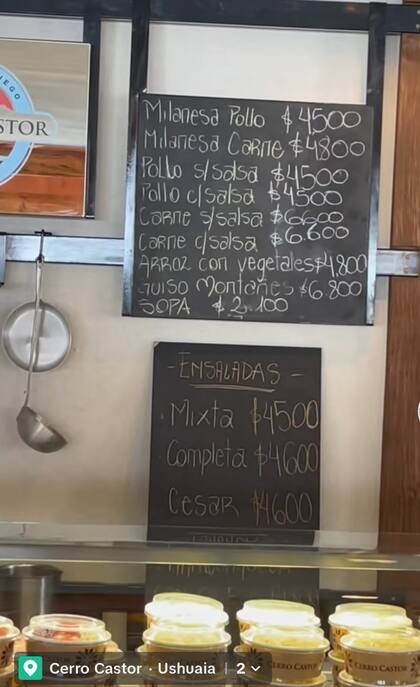 UEGO
STOR
Milanesa Pollo $4500
Milanesa Carne $4800
Pollo s/salsa $4500
Pollo c/salsa $4500
Carne s/salsa $6600
Carne c/salsa $6.600
Arroz con vegetales $4.800
Guiso Montañes $6.800
SOPA $2.100
- ENSALADAS -
Mixta $4500
Completa $4600
Cesar $4600
CERRO CASTOR
Cerro Castor · Ushuaia | 2